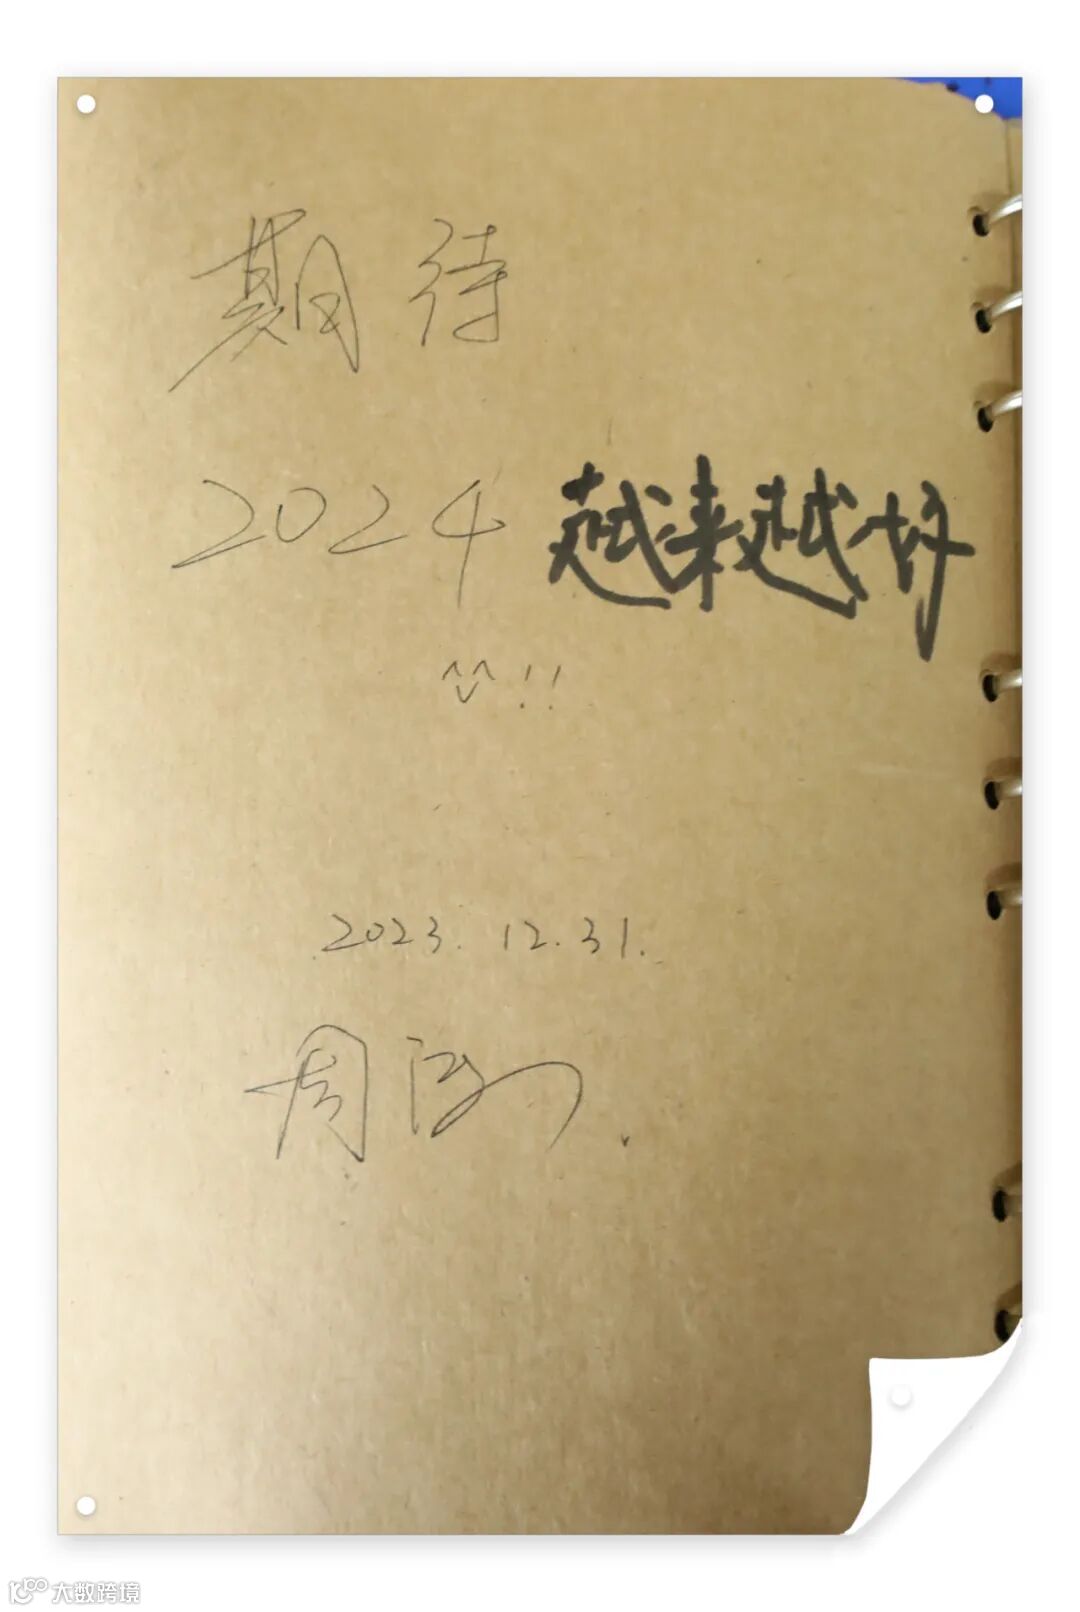 期待
2024 越来越好
^^!!
2023.12.31.
周
大数跨境